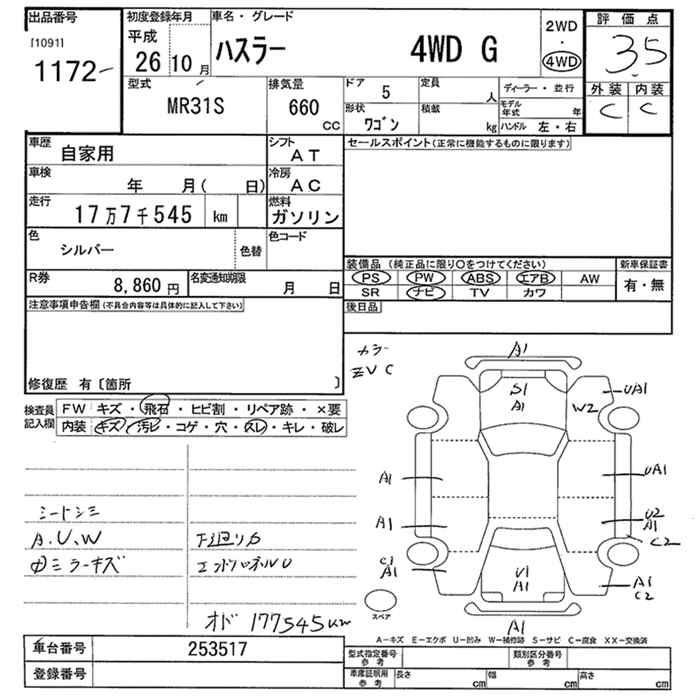 出品番号
[1091]
1172
初度登録年月
平成
26 10 月
車名・グレード
ハスラー 4WD G
2WD
・
4WD
評価点
3.5
外装 内装
C C
型式
MR31S
排気量
660
cc
ドア 5
形状 ワゴン
定員 人
積載 kg
ディーラー・並行
モデル年式 年
ハンドル 左・右
車歴 自家用
シフト AT
車検 年 月( 日)
冷房 AC
走行 17万7千545 km
燃料 ガソリン
色 シルバー
色替
色コード
R券 8,860 円
名変通知期限 月 日
セールスポイント(正常に機能するものに限ります)
装備品 (純正品に限り○をつけてください)
新車保証書
PS PW ABS エアB AW
SR ナビ TV カワ
有・無
後日品
注意事項申告欄(不具合内容等は具体的に記入して下さい)
修復歴 有〔箇所 〕
検査員記入欄
FW キズ・飛石・ヒビ割・リペア跡・×要
内装 キズ・汚レ・コゲ・穴・スレ・キレ・破レ
シートシミ
A.U.W
内ミラーキズ
下廻りサ
エンドパネルU
オド 177545km
カラー
ZVC
A1
S1
A1
W2
UA1
A1
UA1
A1
U2
A1
C2
C1
A1
U1
A1
A1
C2
A1
スペア
A-キズ E-エクボ U-凹み W-補修跡 S-サビ C-腐食 XX-交換済
車台番号 253517
登録番号
型式指定番号 参考
類別区分番号 参考
車庫証明用 参考
長さ cm
幅 cm
高さ cm